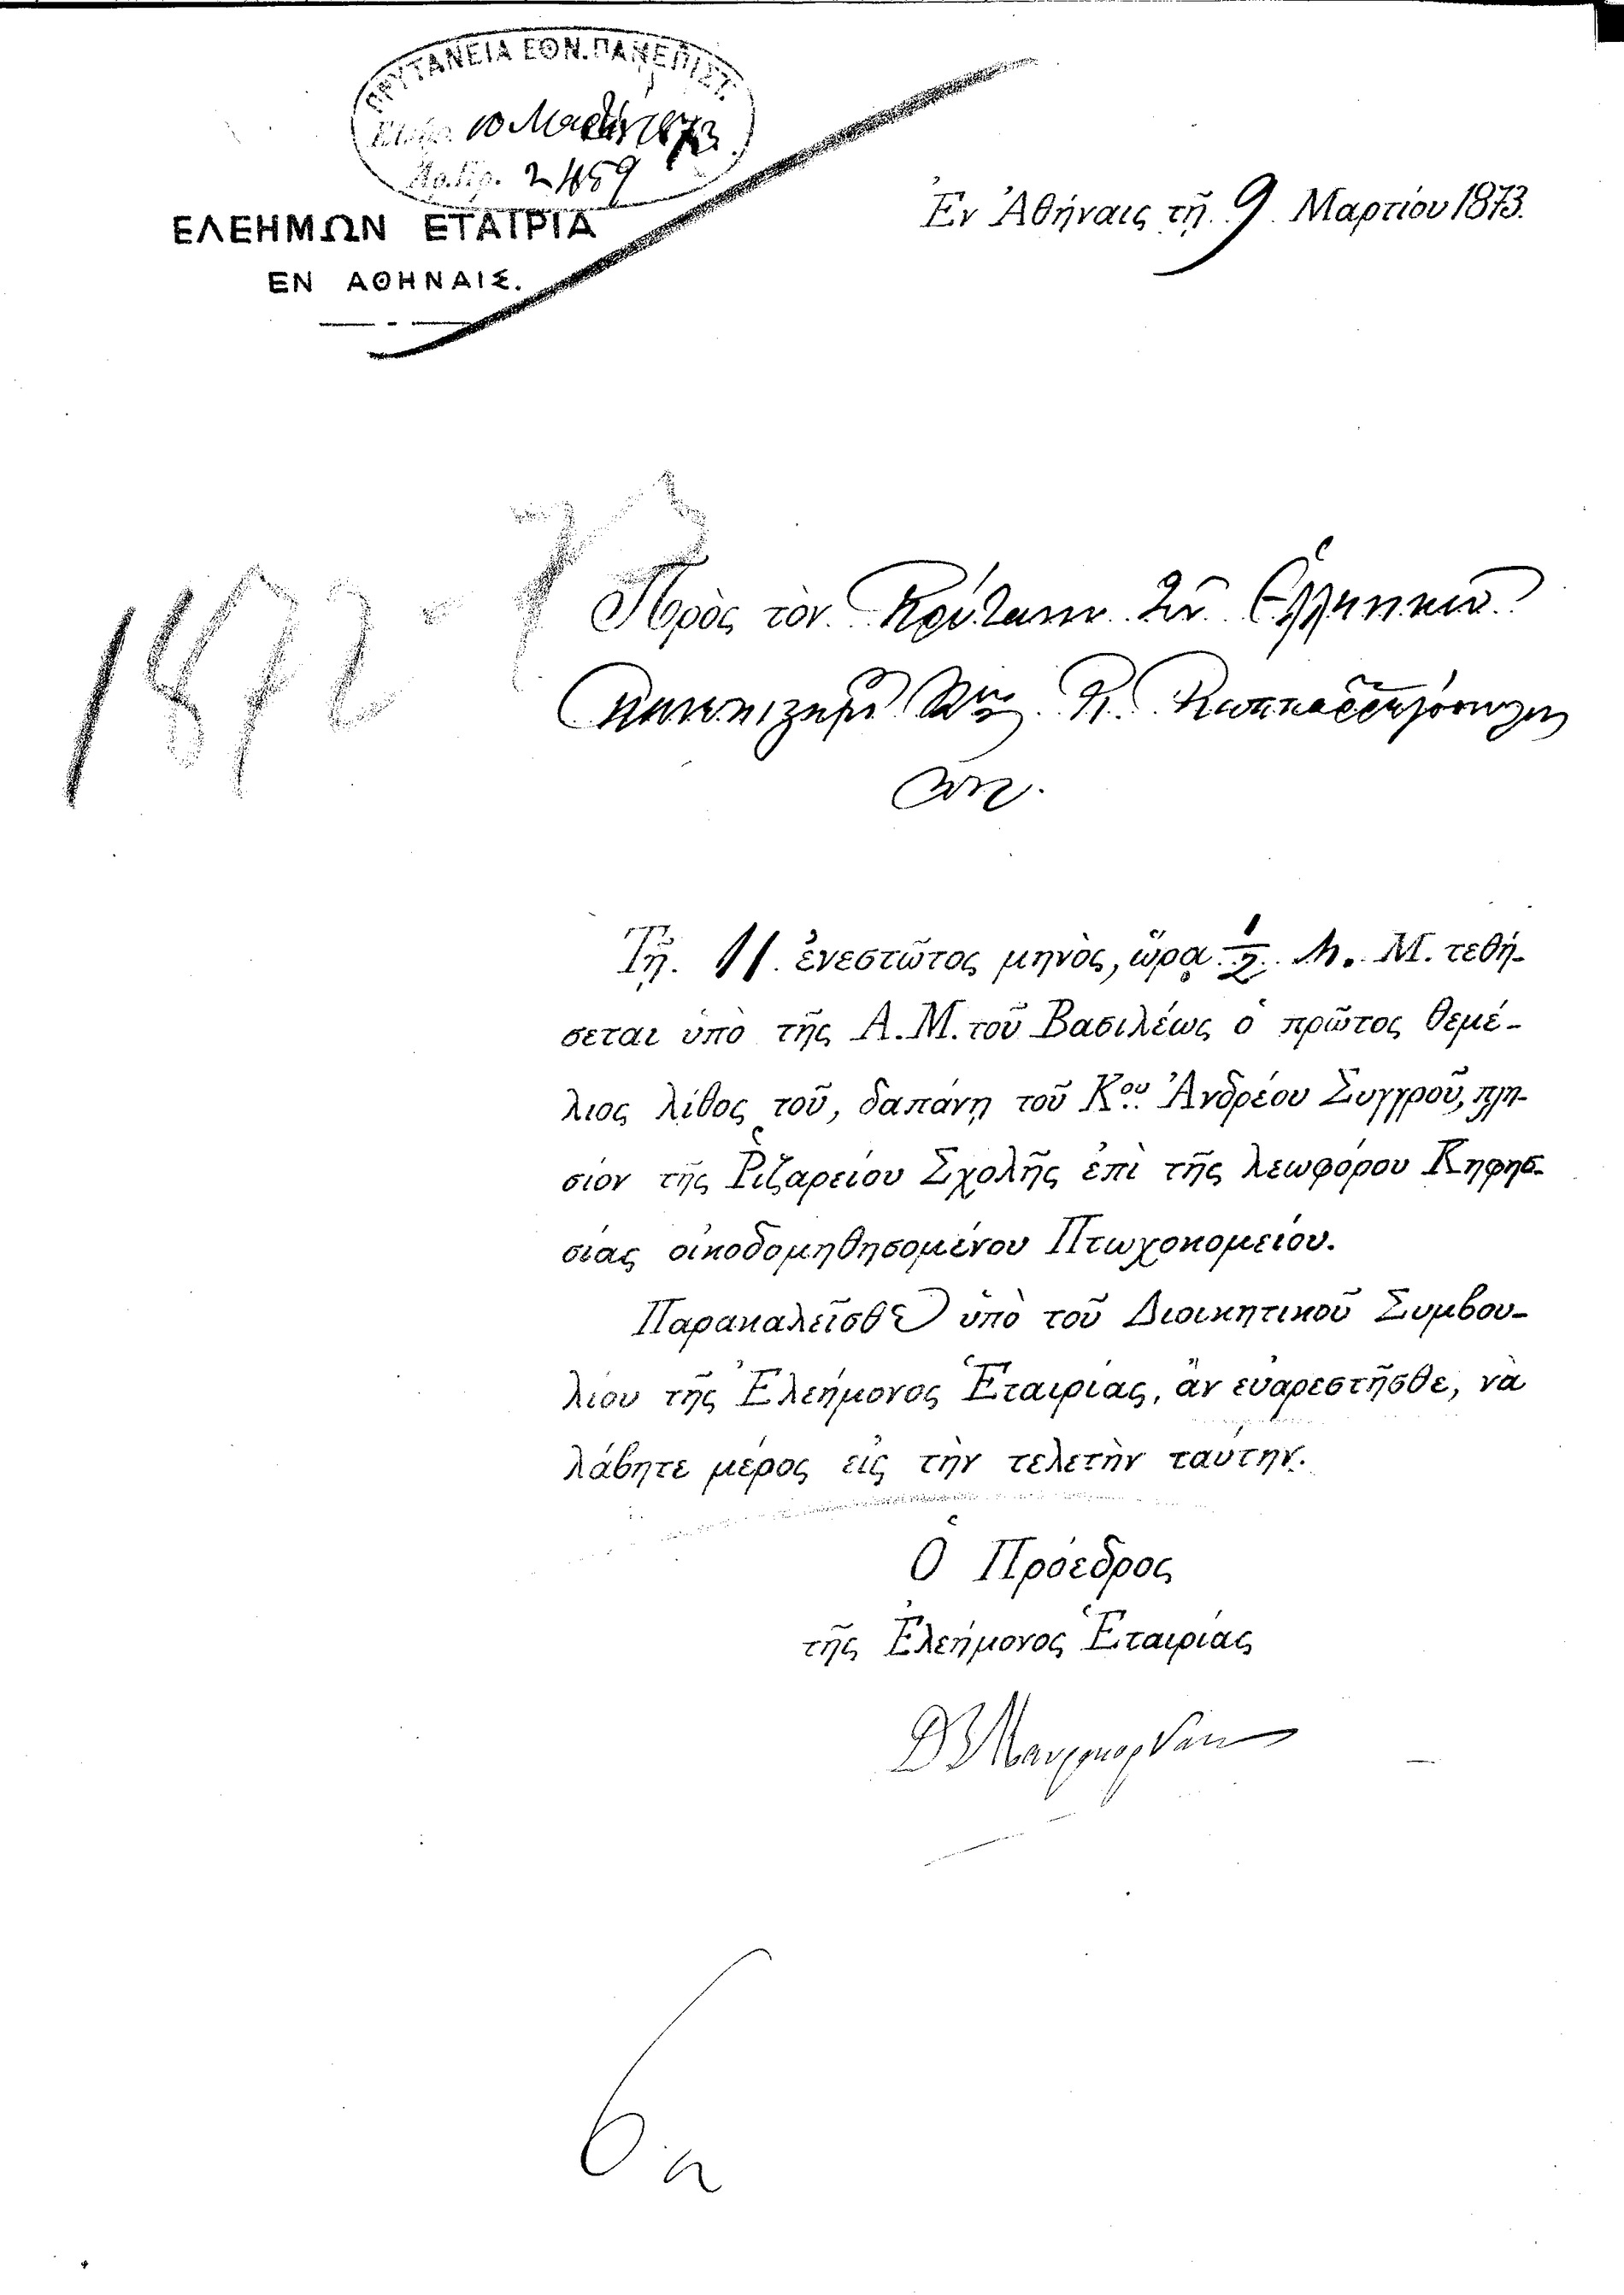 ΠΡΥΤΑΝΕΙΑ ΕΘΝ. ΠΑΝΕΠΙΣΤ.
10 Μαρτίου 1873
Ἀρ. Πρ. 2459
ΕΛΕΗΜΩΝ ΕΤΑΙΡΙΑ
ΕΝ ΑΘΗΝΑΙΣ.
Ἐν Ἀθήναις τῇ 9 Μαρτίου 1873.
1872-73
Πρὸς τὸν Πρύτανιν τοῦ Ἑλληνικοῦ
Πανεπιστημίου Κον Κ. Παππαρρηγόπουλον
Τῇ 11 ἐνεστῶτος μηνὸς, ὥρᾳ 1/2 μ. Μ. τεθή-
σεται ὑπὸ τῆς Α.Μ. τοῦ Βασιλέως ὁ πρῶτος θεμέ-
λιος λίθος τοῦ, δαπάνῃ τοῦ Κου Ἀνδρέου Συγγροῦ, πλη-
σίον τῆς Ῥιζαρείου Σχολῆς ἐπὶ τῆς λεωφόρου Κηφησ-
σίας οἰκοδομηθησομένου Πτωχοκομείου.
Παρακαλεῖσθε ὑπὸ τοῦ Διοικητικοῦ Συμβου-
λίου τῆς Ἐλεήμονος Ἑταιρίας, ἂν εὐαρεστῆσθε, νὰ
λάβητε μέρος εἰς τὴν τελετὴν ταύτην.
Ὁ Πρόεδρος
τῆς Ἐλεήμονος Ἑταιρίας
6